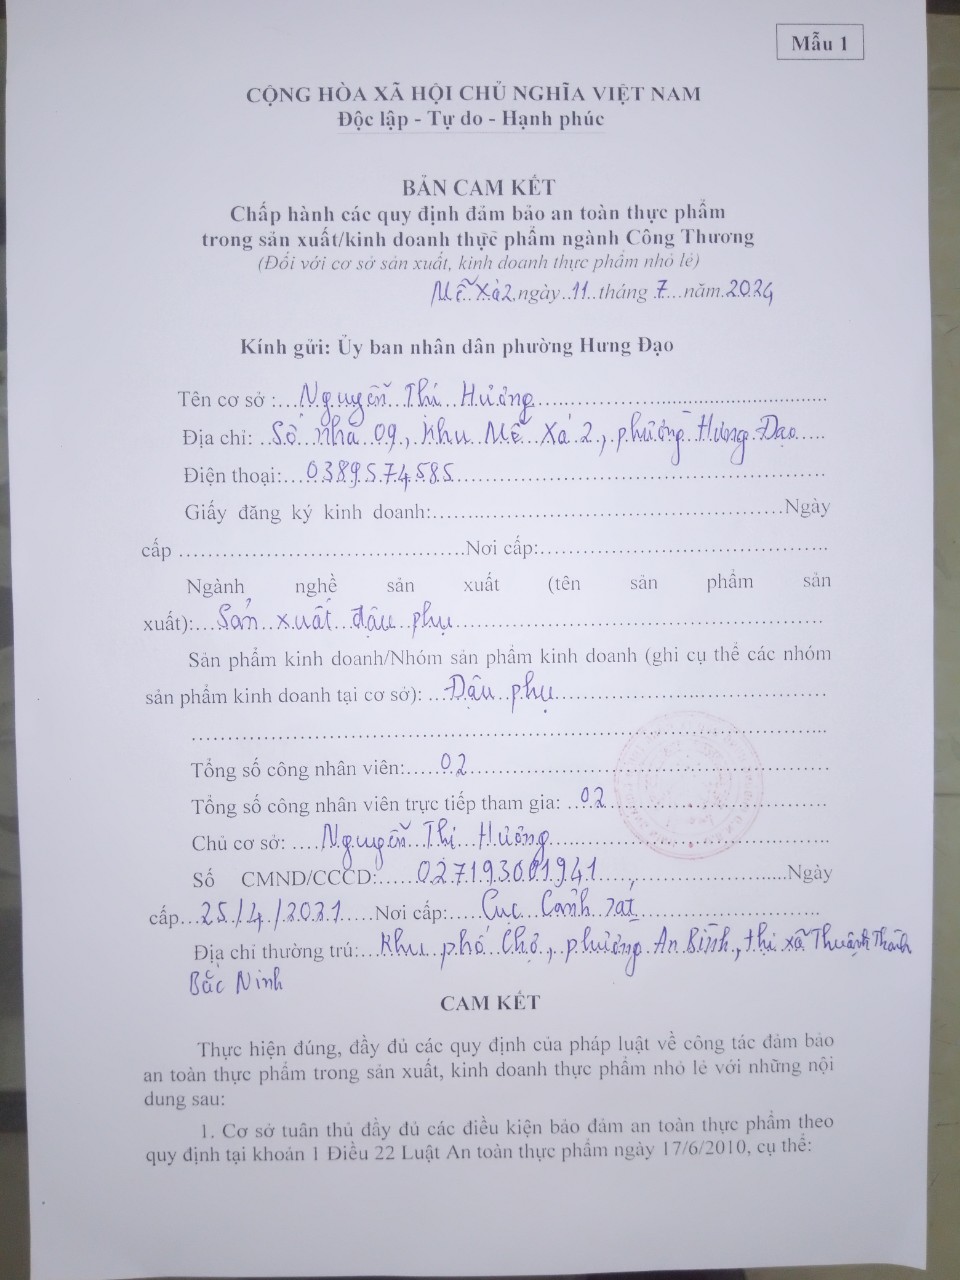 Mẫu 1
CỘNG HÒA XÃ HỘI CHỦ NGHĨA VIỆT NAM
Độc lập - Tự do - Hạnh phúc
BẢN CAM KẾT
Chấp hành các quy định đảm bảo an toàn thực phẩm
trong sản xuất/kinh doanh thực phẩm ngành Công Thương
(Đối với cơ sở sản xuất, kinh doanh thực phẩm nhỏ lẻ)
Mễ Xá 2, ngày 11 tháng 7 năm 2024
Kính gửi: Ủy ban nhân dân phường Hưng Đạo
Tên cơ sở : Nguyễn Thị Hưởng
Địa chỉ: Số nhà 09, Khu Mễ Xá 2, phường Hưng Đạo
Điện thoại: 0389574585
Giấy đăng ký kinh doanh: Ngày
cấp Nơi cấp:
Ngành nghề sản xuất (tên sản phẩm sản
xuất): Sản xuất đậu phụ
Sản phẩm kinh doanh/Nhóm sản phẩm kinh doanh (ghi cụ thể các nhóm
sản phẩm kinh doanh tại cơ sở): Đậu phụ
Tổng số công nhân viên: 02
Tổng số công nhân viên trực tiếp tham gia: 02
Chủ cơ sở: Nguyễn Thị Hưởng
Số CMND/CCCD: 027193001941 Ngày
cấp 25/4/2021 Nơi cấp: Cục Cảnh sát
Địa chỉ thường trú: Khu phố Chợ, phường An Bình, thị xã Thuận Thành
Bắc Ninh
CAM KẾT
Thực hiện đúng, đầy đủ các quy định của pháp luật về công tác đảm bảo
an toàn thực phẩm trong sản xuất, kinh doanh thực phẩm nhỏ lẻ với những nội
dung sau:
1. Cơ sở tuân thủ đầy đủ các điều kiện bảo đảm an toàn thực phẩm theo
quy định tại khoản 1 Điều 22 Luật An toàn thực phẩm ngày 17/6/2010, cụ thể: